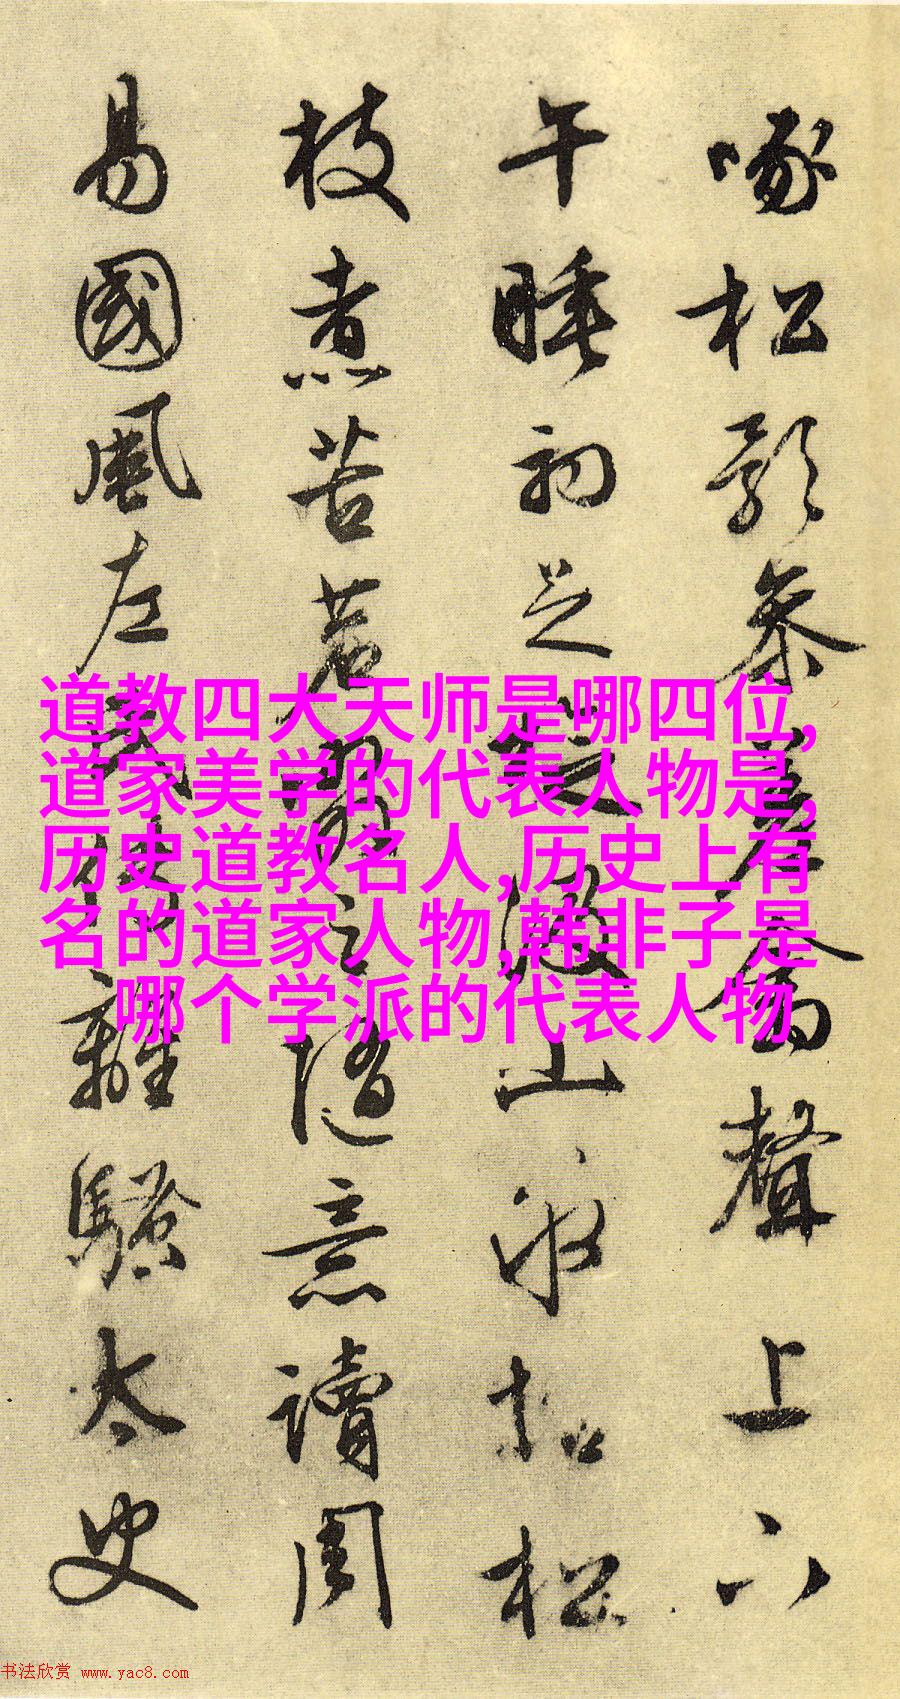 啄松影參差禽聲上下
午睡初足旋汲山泉拾松
枝煮苦茗啜之隨意讀周
易國風左氏傳離騷太史
道教四大天师是哪四位,
道家美学的代表人物是,
历史道教名人,历史上有
名的道家人物,韩非子是
哪个学派的代表人物
书法欣赏 www.yac8.com